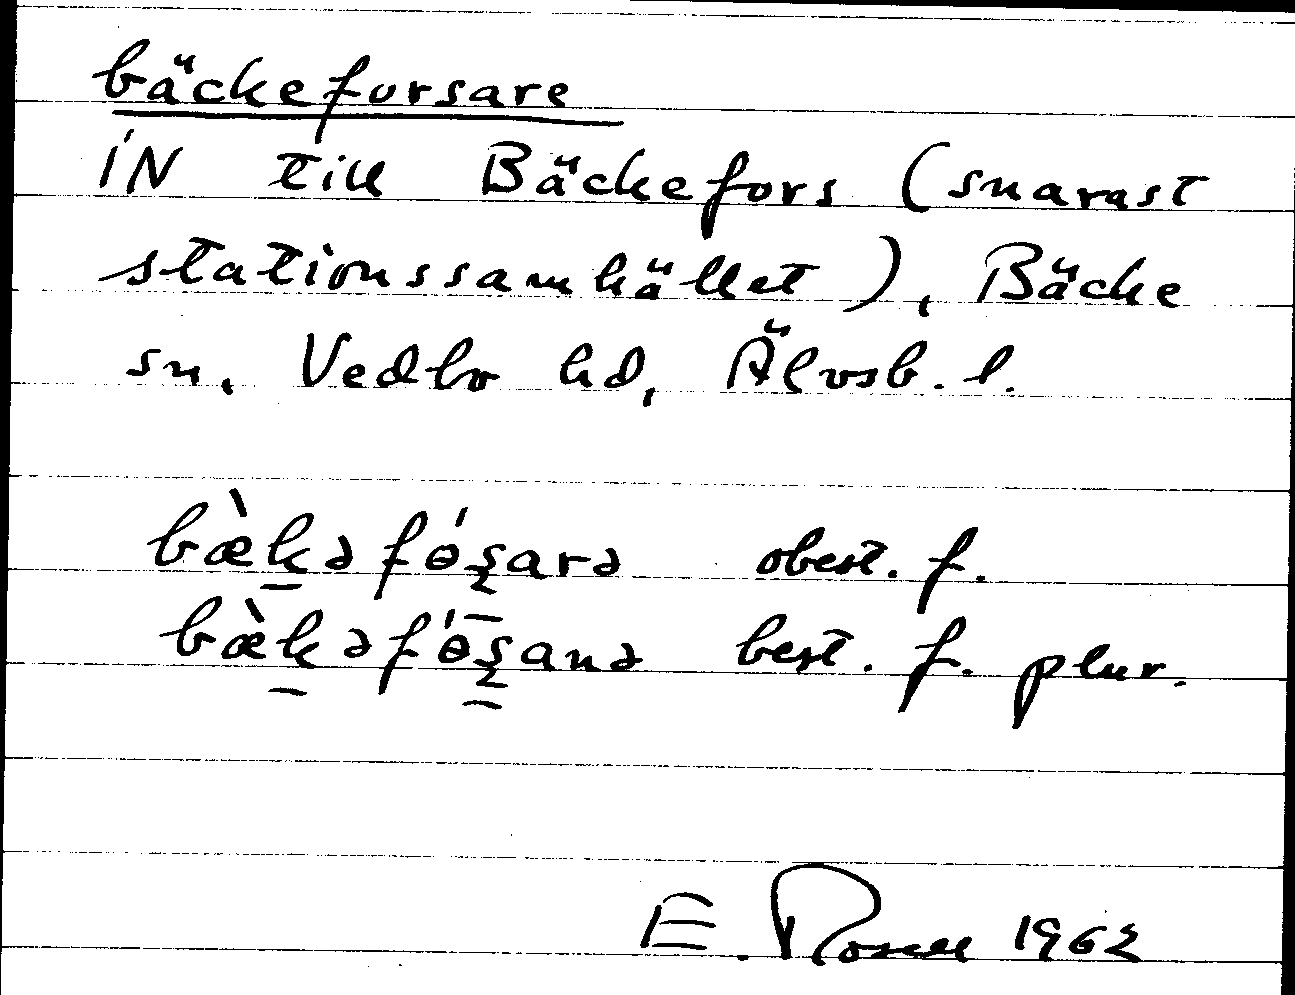 bäckeforsare
iN till Bäckefors (snarast
stationssamhället), Bäcke
sn, Vedbo hd, Älvsb. l.
bæ̀k̠əfɵ́ʂ̠arə obest. f.
bæ̀k̠əfɵ́ʂ̠anə best. f. plur.
E. Rosell 1962